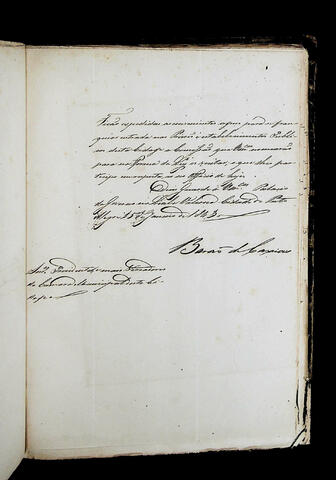 Ficão expedidas as convenientes ordens para ser franqueada
entrada nas Prisões e estabelecimentos Publicos
desta Cidade a Commissão que VV.mces nomearão
para na forma da Ley os visitar, e que de
participo em resposta ao seu officio de hoje.
Deos Guarde a VV.mces Palacio
do Governo na Leal e Valorosa Cidade de Porto
Alegre 15 de Janeiro de 1843.
Barão de Caxias
Snr.es Presidente e mais Vereadores
da Camara Municipal desta Ci-
dade